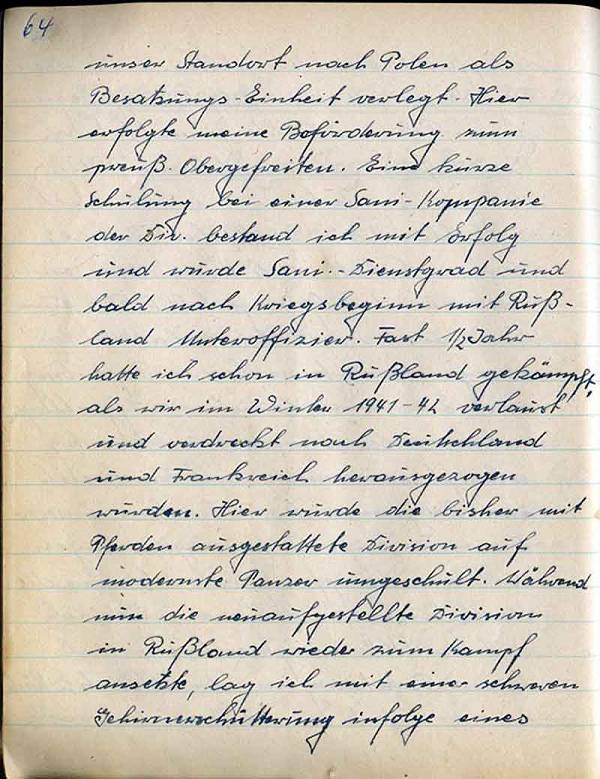 64
unser Standort nach Polen als
Besatzungs-Einheit verlegt. Hier
erfolgte meine Beförderung zum
preuß. Obergefreiten. Eine kurze
Schulung bei einer Sani-Kompanie
der Div. bestand ich mit Erfolg
und wurde Sani.-Dienstgrad und
bald nach Kriegsbeginn mit Ruß-
land Unteroffizier. Fast 1/2 Jahr
hatte ich schon in Rußland gekämpft,
als wir im Winter 1941-42 verlaust
und verdreckt nach Deutschland
und Frankreich herausgezogen
wurden. Hier wurde die bisher mit
Pferden ausgestattete Division auf
modernste Panzer umgeschult. Während
nun die neuaufgestellte Division
in Rußland wieder zum Kampf
ansetzte, lag ich mit einer schweren
Gehirnerschütterung infolge eines